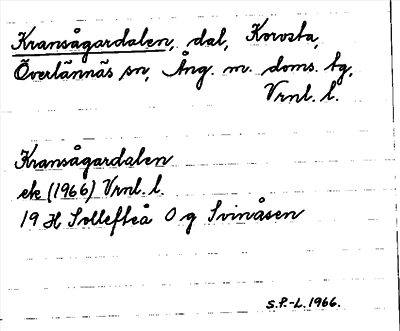 Kransågardalen, dal, Korvsta,
Överlännäs sn, Ång. m. doms. tg,
Vrnl. l.
Kransågardalen
ek (1966) Vrnl. l.
19 H Sollefteå 0 g Svinåsen
S.P.-L. 1966.